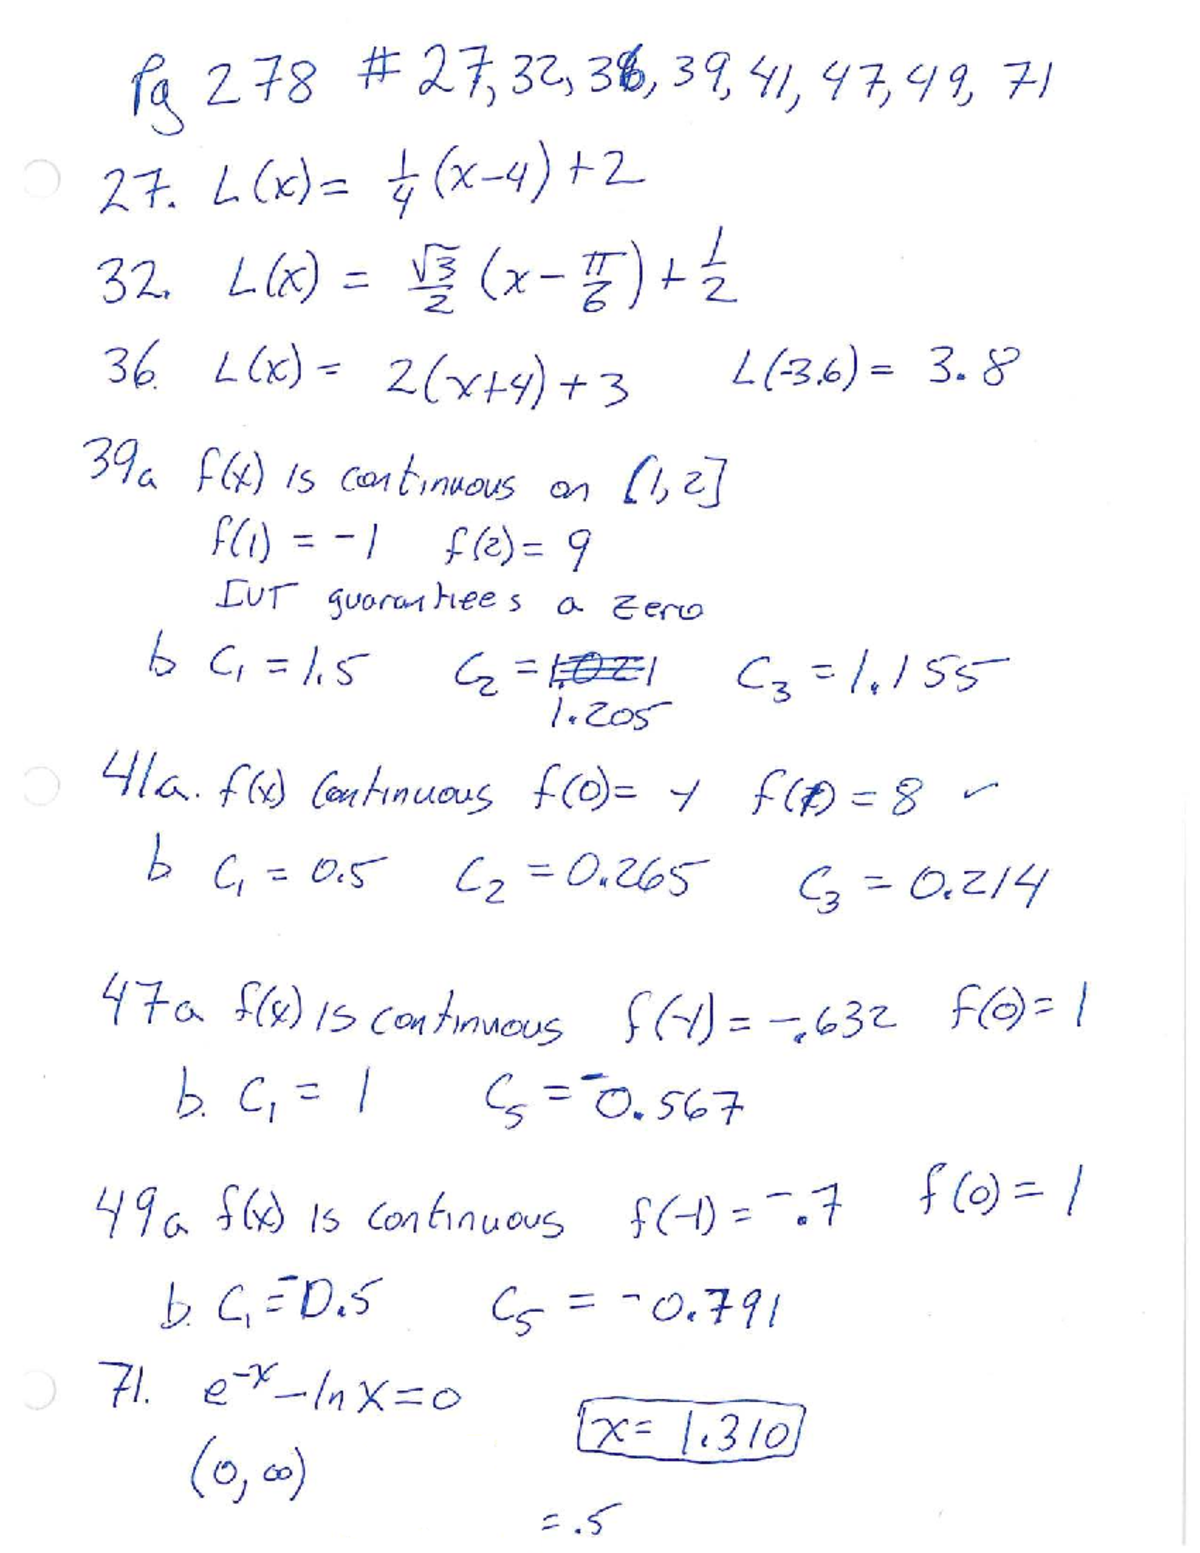 Pg 278 # 27, 32, 36, 39, 41, 47, 49, 71
27. L(x) = 1/4 (x-4) + 2
32. L(x) = √3/2 (x - π/6) + 1/2
36. L(x) = 2(x+4) + 3 L(-3.6) = 3.8
39a f(x) is continuous on [1, 2]
f(1) = -1 f(2) = 9
IVT guarantees a zero
b C₁ = 1.5 C₂ = 1.021 C₃ = 1.155
1.205
41a. f(x) continuous f(0) = -1 f(1) = 8
b C₁ = 0.5 C₂ = 0.265 C₃ = 0.214
47a f(x) is continuous f(-1) = -.632 f(0) = 1
b. C₁ = 1 C₅ = -0.567
49a f(x) is continuous f(-1) = -.7 f(0) = 1
b. C₁ = -0.5 C₅ = -0.791
71. e^-x - ln x = 0
x = 1.310
(0, ∞)
= .5